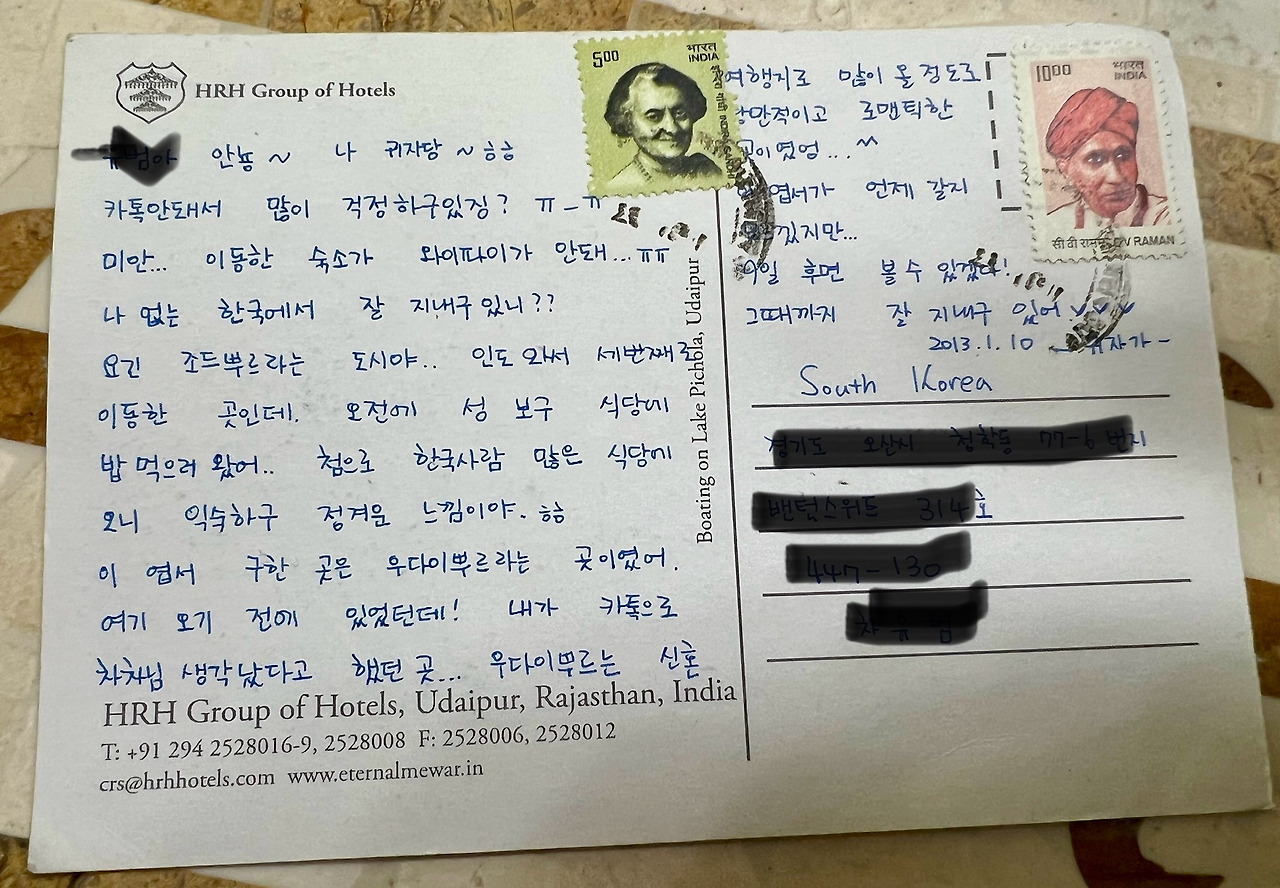 HRH Group of Hotels
안뇽~ 나 귀자당~ㅎㅎ
카톡안돼서 많이 걱정하구있징? ㅠ_ㅠ
미안... 이동한 숙소가 와이파이가 안돼...ㅠㅠ
나 없는 한국에서 잘 지내구있니??
요긴 조드뿌르라는 도시야.. 인도 와서 세번째로
이동한 곳인데! 오전에 성 보구 식당에
밥 먹으러 왔어.. 첨으로 한국사람 많은 식당에
오니 익숙하구 정겨운 느낌이야. ㅎㅎ
이 엽서 구한 곳은 우다이뿌르라는 곳이였어.
여기 오기 전에 있었던데! 내가 카톡으로
차차님 생각났다고 했던 곳... 우다이뿌르는 신혼
HRH Group of Hotels, Udaipur, Rajasthan, India
T: +91 294 2528016-9, 2528008 F: 2528006, 2528012
crs@hrhhotels.com www.eternalmewar.in
Boating on Lake Pichola, Udaipur
500
भारत
INDIA
1000
भारत
INDIA
सी वी रामन C V RAMAN
여행지로 많이 올 정도로
낭만적이고 로맨틱한
곳이였엉...^^
엽서가 언제 갈지
모르겠지만...
후면 볼 수 있겠다!
그때까지 잘 지내구 있어
2013.1.10 귀자가-
South Korea